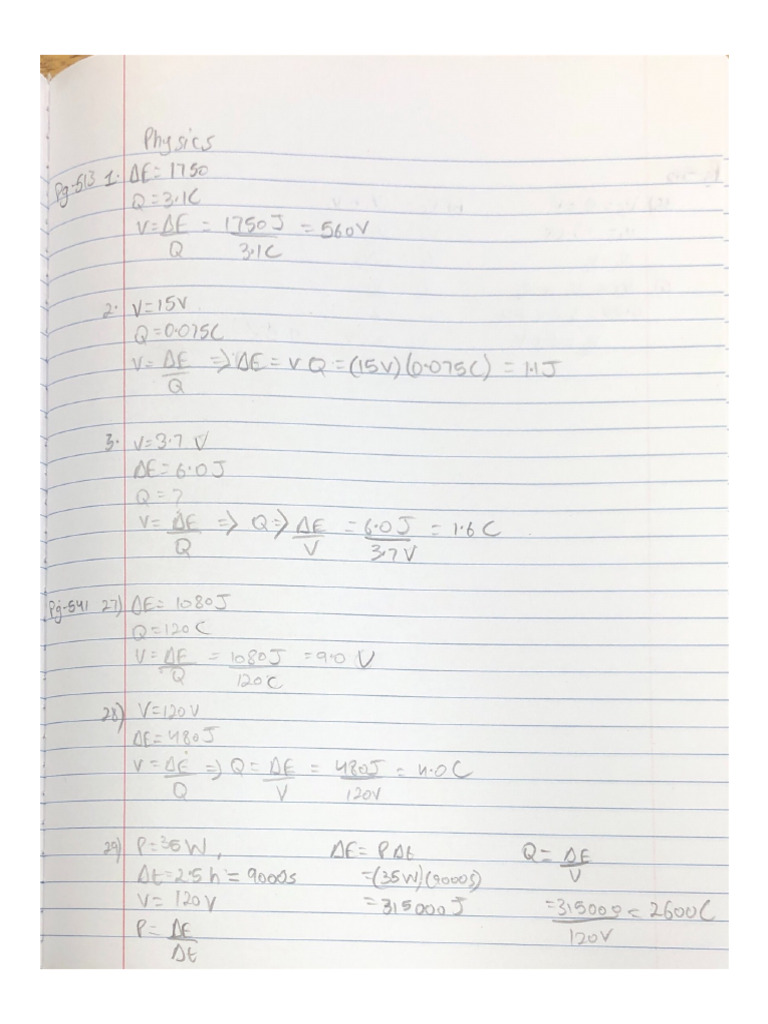 Physics
Pg-513 1. ΔE = 1750
Q = 3.1C
V = ΔE/Q = 1750J/3.1C = 560V
2. V = 15V
Q = 0.075C
V = ΔE/Q => ΔE = VQ = (15V)(0.075C) = 1.1J
3. V = 3.7 V
ΔE = 6.0J
Q = ?
V = ΔE/Q => Q => ΔE/V = 6.0J/3.7V = 1.6C
Pg-541 27) ΔE = 1080J
Q = 120C
V = ΔE/Q = 1080J/120C = 9.0 V
28) V = 120V
ΔE = 480J
V = ΔE/Q => Q = ΔE/V = 480J/120V = 4.0C
29) P = 35W, ΔE = PΔt Q = ΔE/V
Δt = 2.5h = 9000s = (35W)(9000s)
V = 120V = 315000J = 315000/120V = 2600C
P = ΔE/Δt